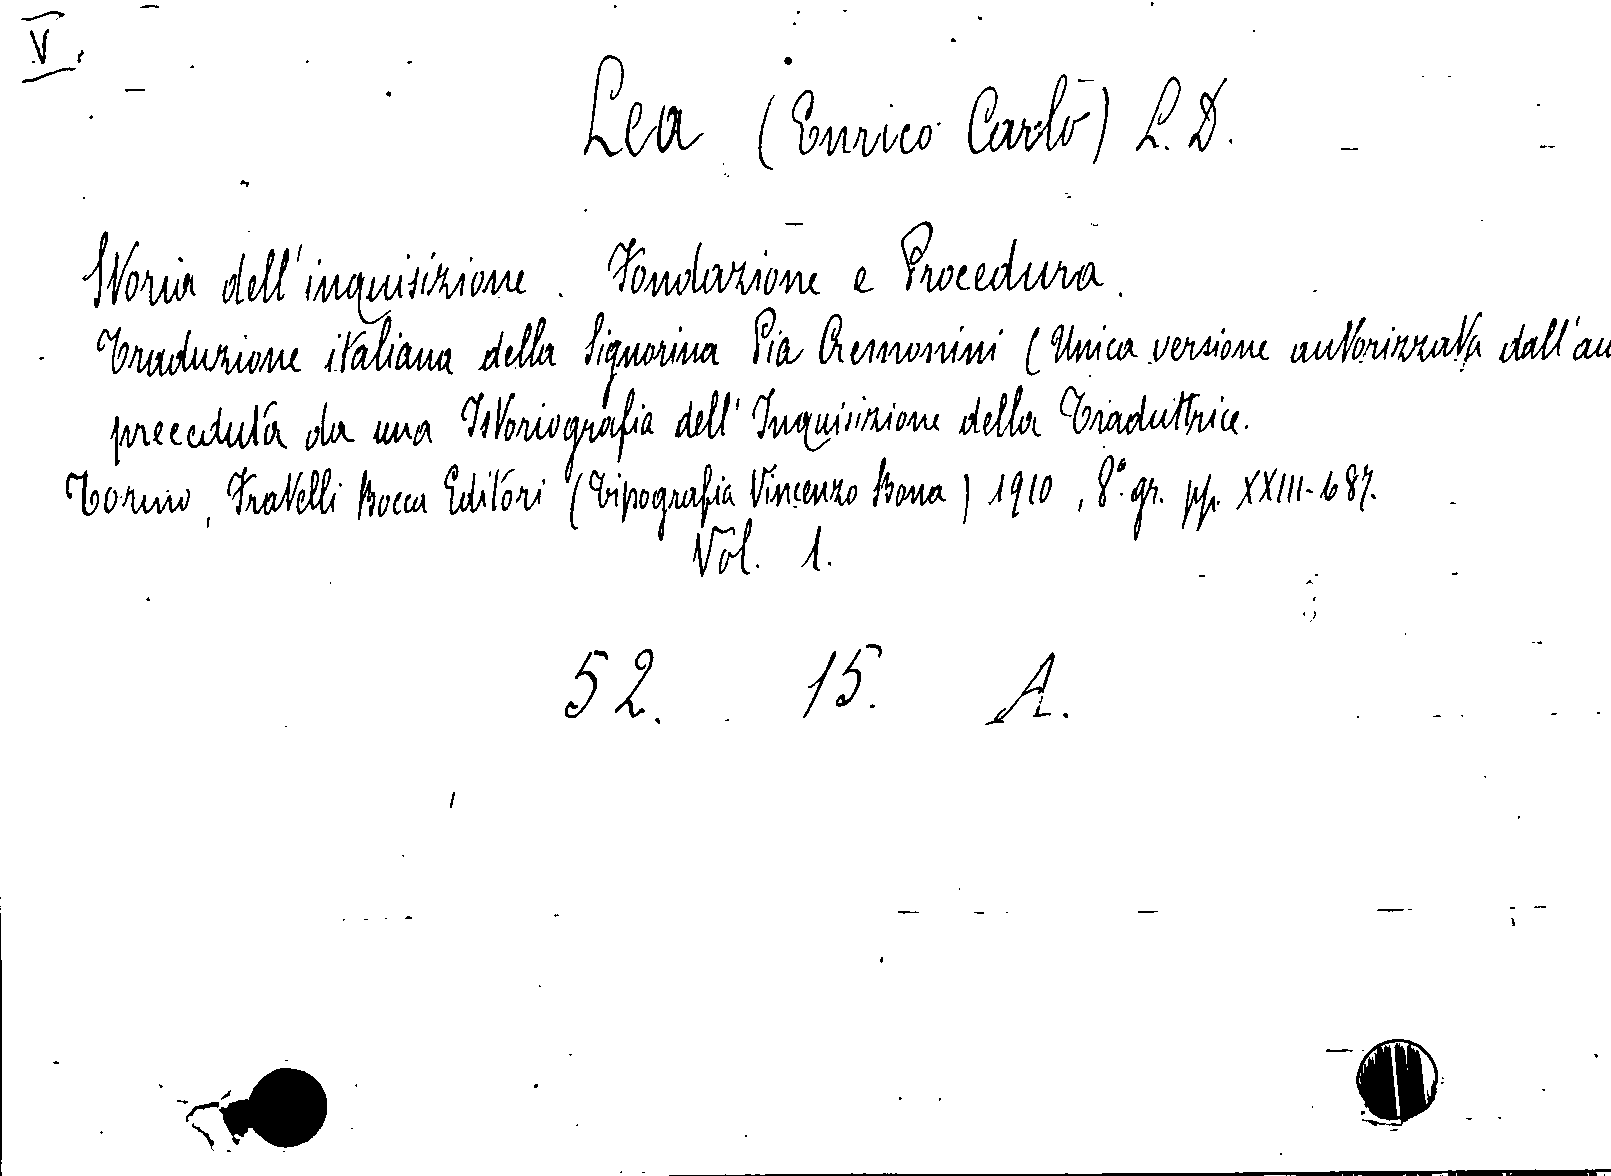 V.
Lea (Enrico Carlo) L. D.
Storia dell'inquisizione. Fondazione e Procedura.
Traduzione italiana della Signorina Pia Cremonini (Unica versione autorizzata dall'au
preceduta da una Istoriografia dell'Inquisizione della Traduttrice.
Torino, Fratelli Bocca Editori (Tipografia Vincenzo Bona) 1910, 8° gr. pp. XXIII-687.
Vol. 1.
52. 15. A.